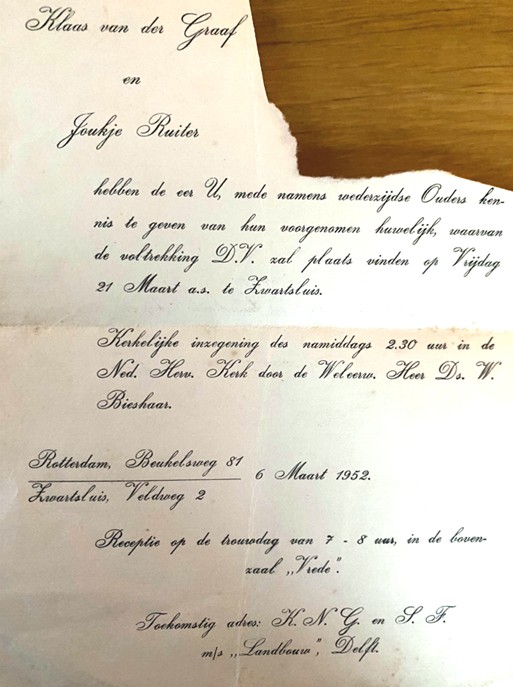 Klaas van der Graaf
en
Joukje Ruiter
hebben de eer U, mede namens wederzijdse Ouders ken-
nis te geven van hun voorgenomen huwelijk, waarvan
de voltrekking D.V. zal plaats vinden op Vrijdag
21 Maart a.s. te Zwartsluis.
Kerkelijke inzegening des namiddags 2.30 uur in de
Ned. Herv. Kerk door de Weleerw. Heer Ds. W.
Bieshaar.
Rotterdam, Beukelsweg 81
Zwartsluis, Veldweg 2
6 Maart 1952.
Receptie op de trouwdag van 7 - 8 uur, in de boven-
zaal „Vrede".
Toekomstig adres: K. N. G. en S. F.
m/s „Landbouw", Delft.